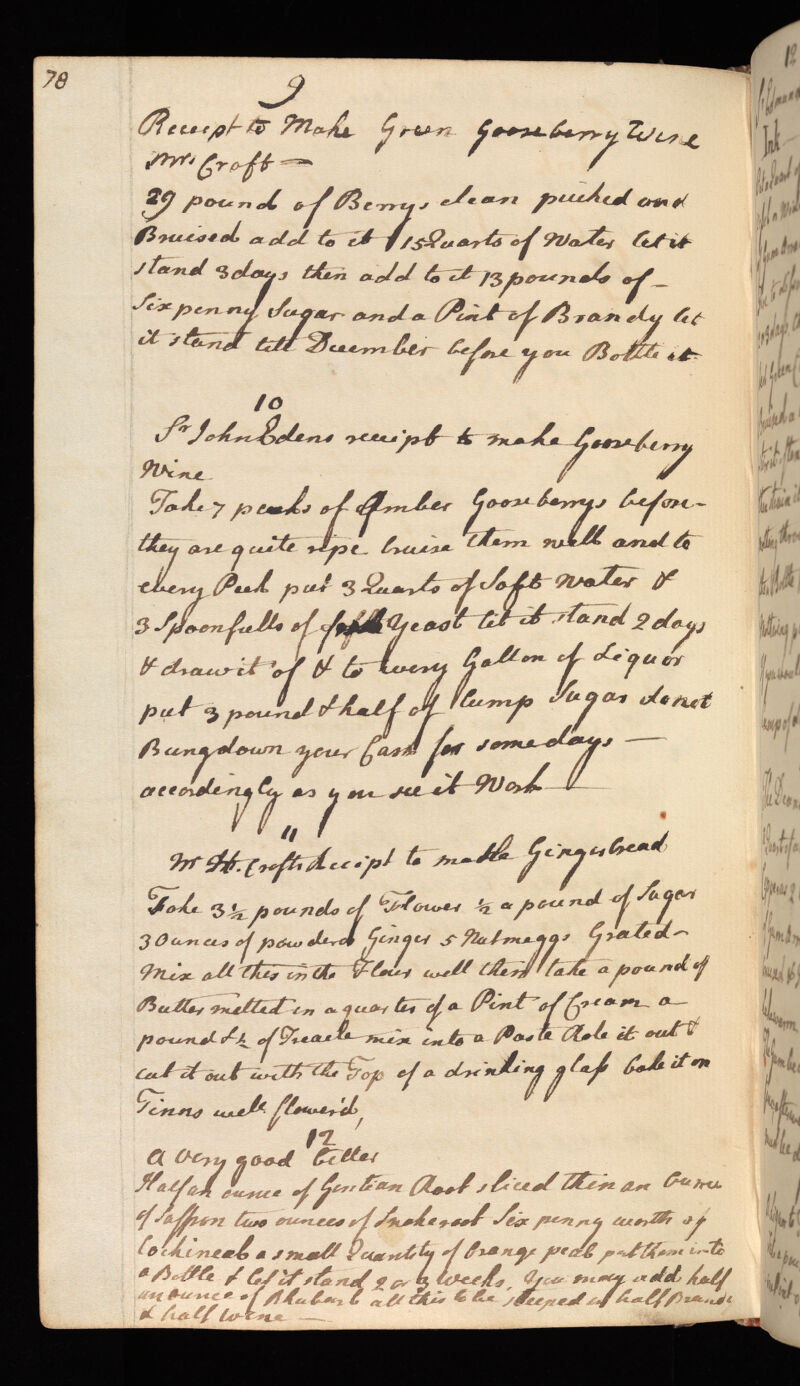 78
9
Receipt to Make Green Gooseberry Wine
Mrs Croft —
29 pound of Berrys clean picked and
Bruised add to it 15 Quarts of Water let it
stand 3 days then add to it 13 pounds of -
Six penny Sugar and a Pint of Brandy let
it stand till December before you Bottle it
10
Sr John Edens receipt to make Gooseberry
Wine
Take 7 pecks of Amber Gooseberrys before -
they are quite ripe bruise them well and to
every Peck put 3 Quarts of Soft Water &
3 Spoonfulls of Yeast let it stand 2 days
& draw it of & to every Gallon of Liquor
put 3 pound & half of Lump Sugar do not
Bung down your Cask for some days —
accordingly as you see it Work —
11
Mr H. Crofts Receipt to make Gingerbread
Take 3½ pounds of Flower ½ a pound of Sugar
3 Ounces of powderd Ginger 5 Nutmeggs Grated -
Mix all this in the Flour well then take a pound of
Butter melted in a quarter of a Pint of Cream a -
pound & ½ of Treacle mix into a Paste Role it out &
cut it out with the Top of a drinking glass bake it on
Tinns well flower'd,
12
A very good bitter
Half an ounce of Gentian Root sliced thin an ounce
of Saffron two ounces of Snakeroot Six penny worth of
Cochineal a small Quantity of Orange peal put them into
a Bottle & let it stand 2 or 3 Weeks, You may add half
an ounce of Rhubarb all this to be steeped in half Brandy
& half wine —
12
Ink